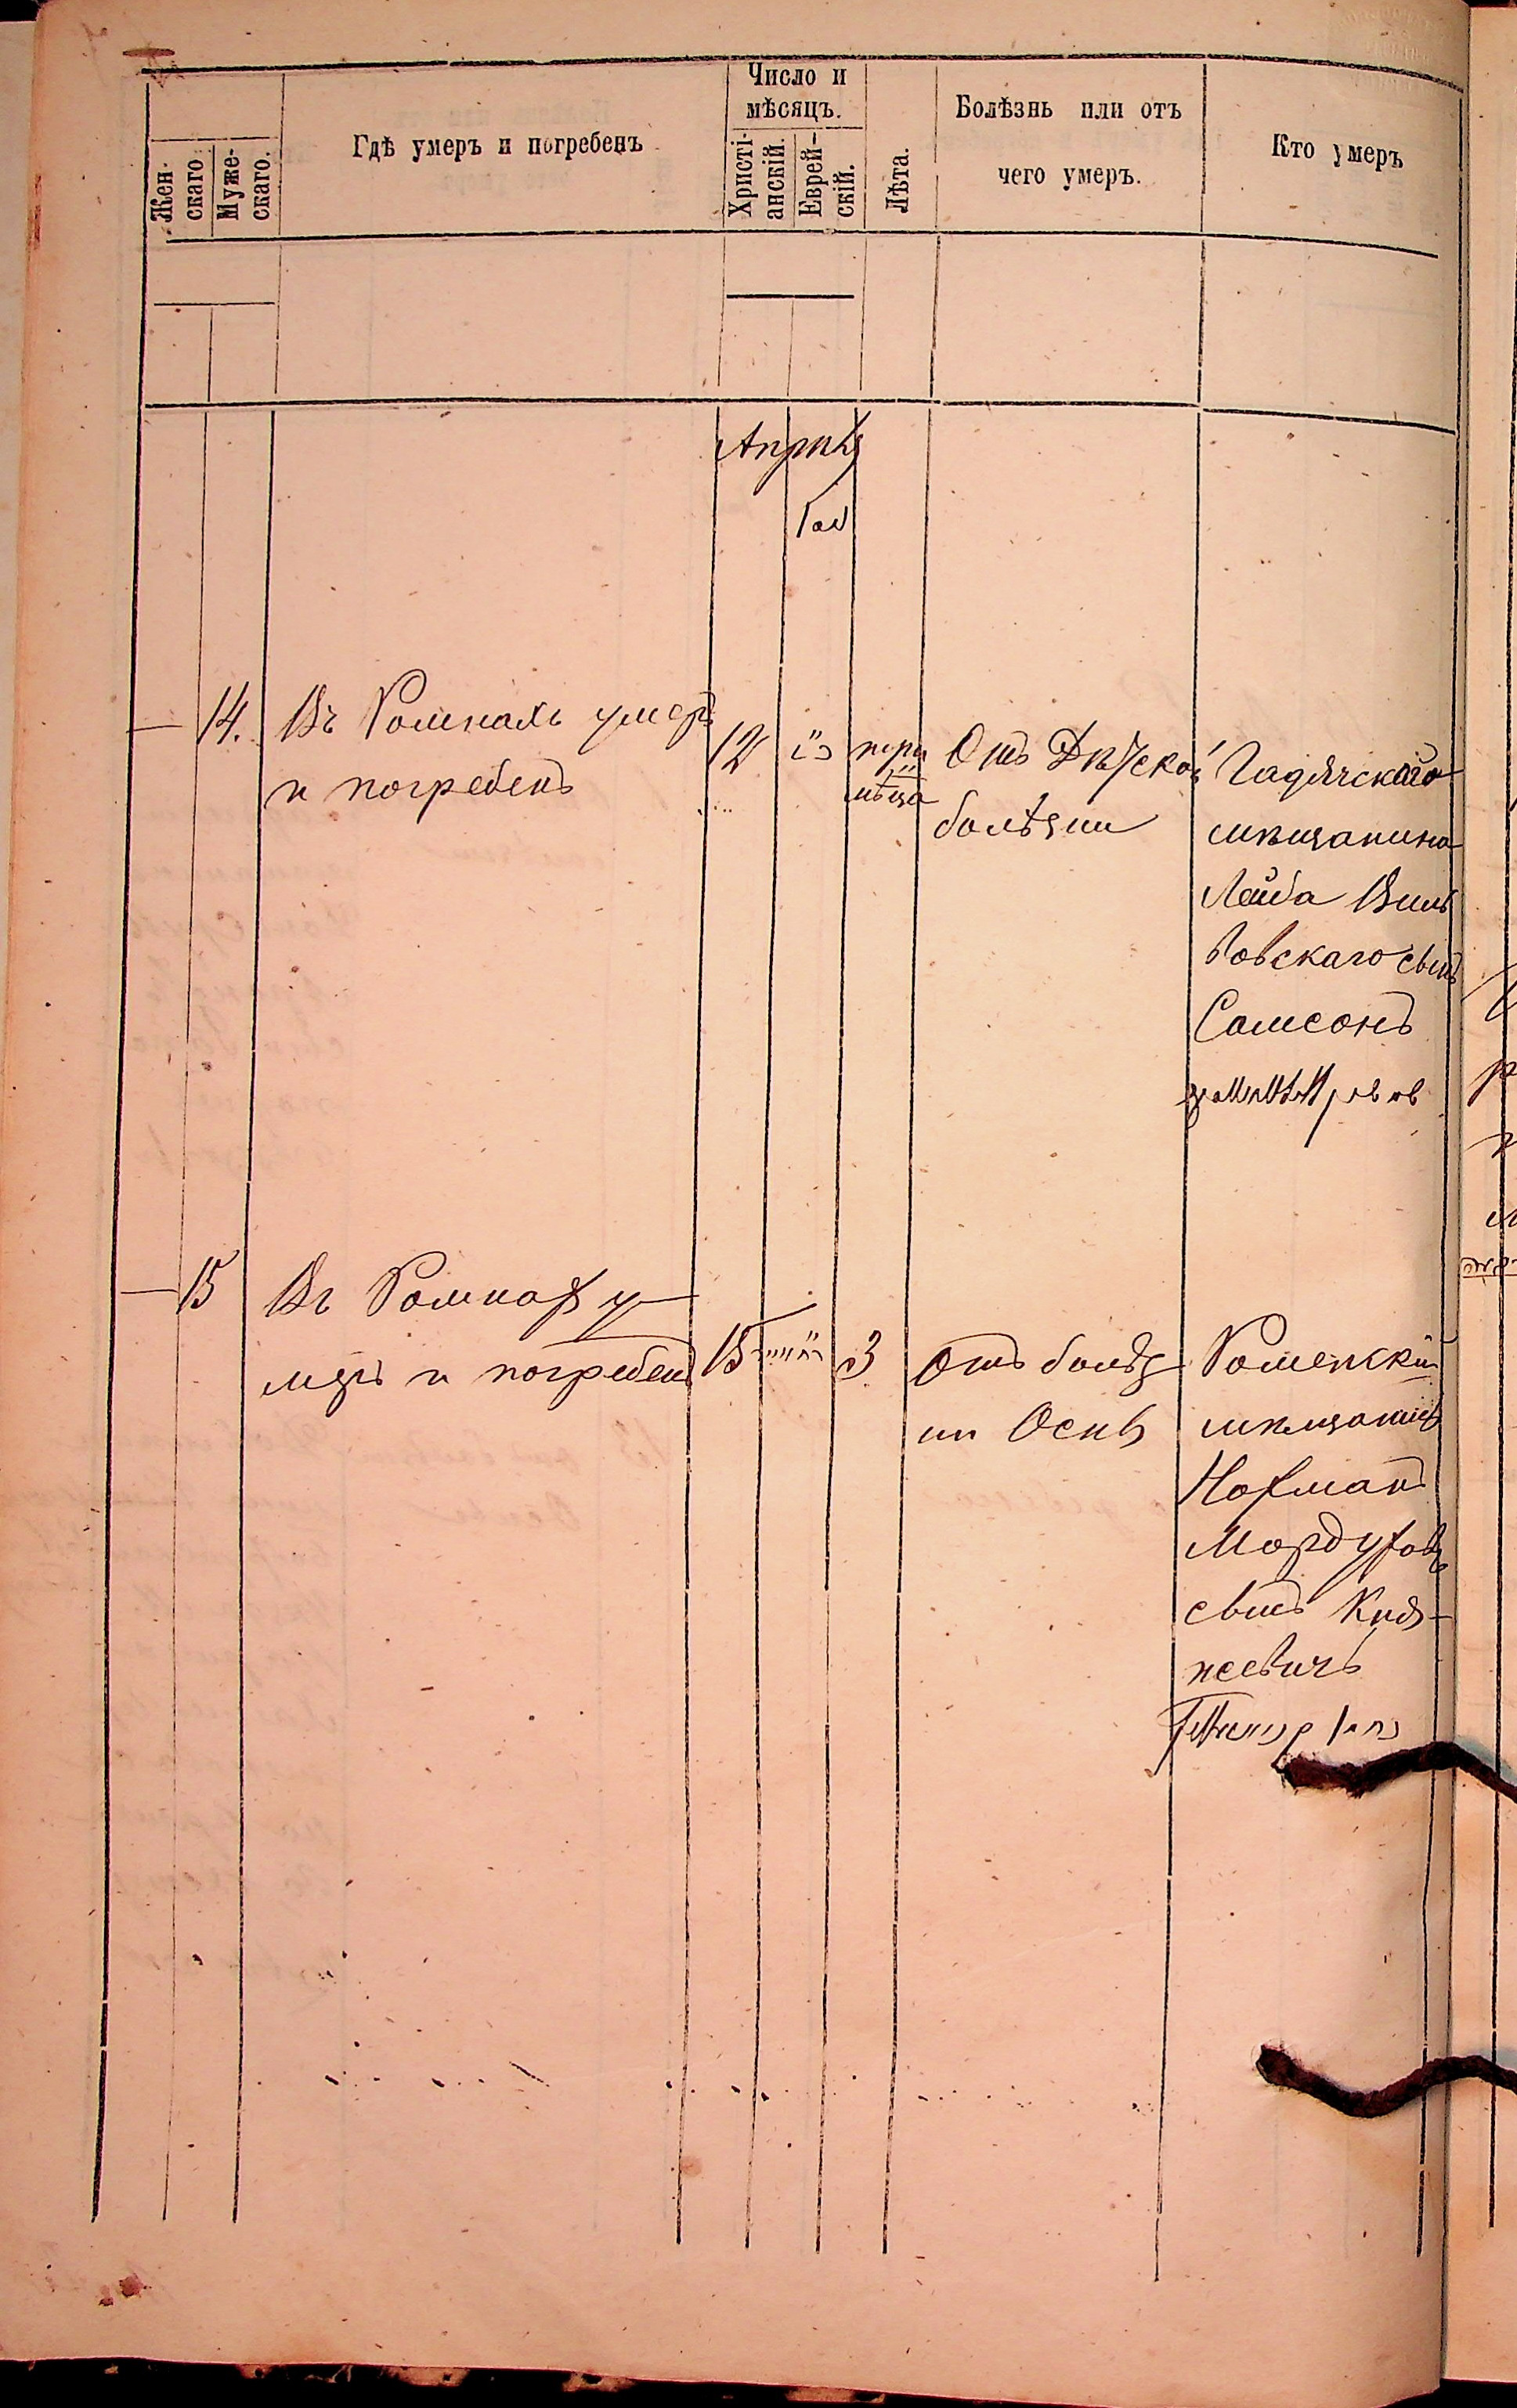 Жен-
скаго
Муже-
скаго.
Гдѣ умеръ и погребенъ
Число и
мѣсяцъ.
Христі-
анскій.
Еврей-
скій.
Лѣта.
Болѣзнь или отъ
чего умеръ.
Кто умеръ
Апрѣля
— 14.
Въ Ромнахъ умеръ
и погребенъ
12
мѣсяца
Отъ Дѣтской
болѣзни
Гадячскаго
мѣщанина
Лейба
сынъ
Самсонъ
— 15
Въ Ромнахъ у-
меръ и погребенъ
15
3
Отъ болѣз
ни Оспы
Роменскій
мѣщанинъ
Нохманъ
Мордухов
сынъ Кня-
жевичъ